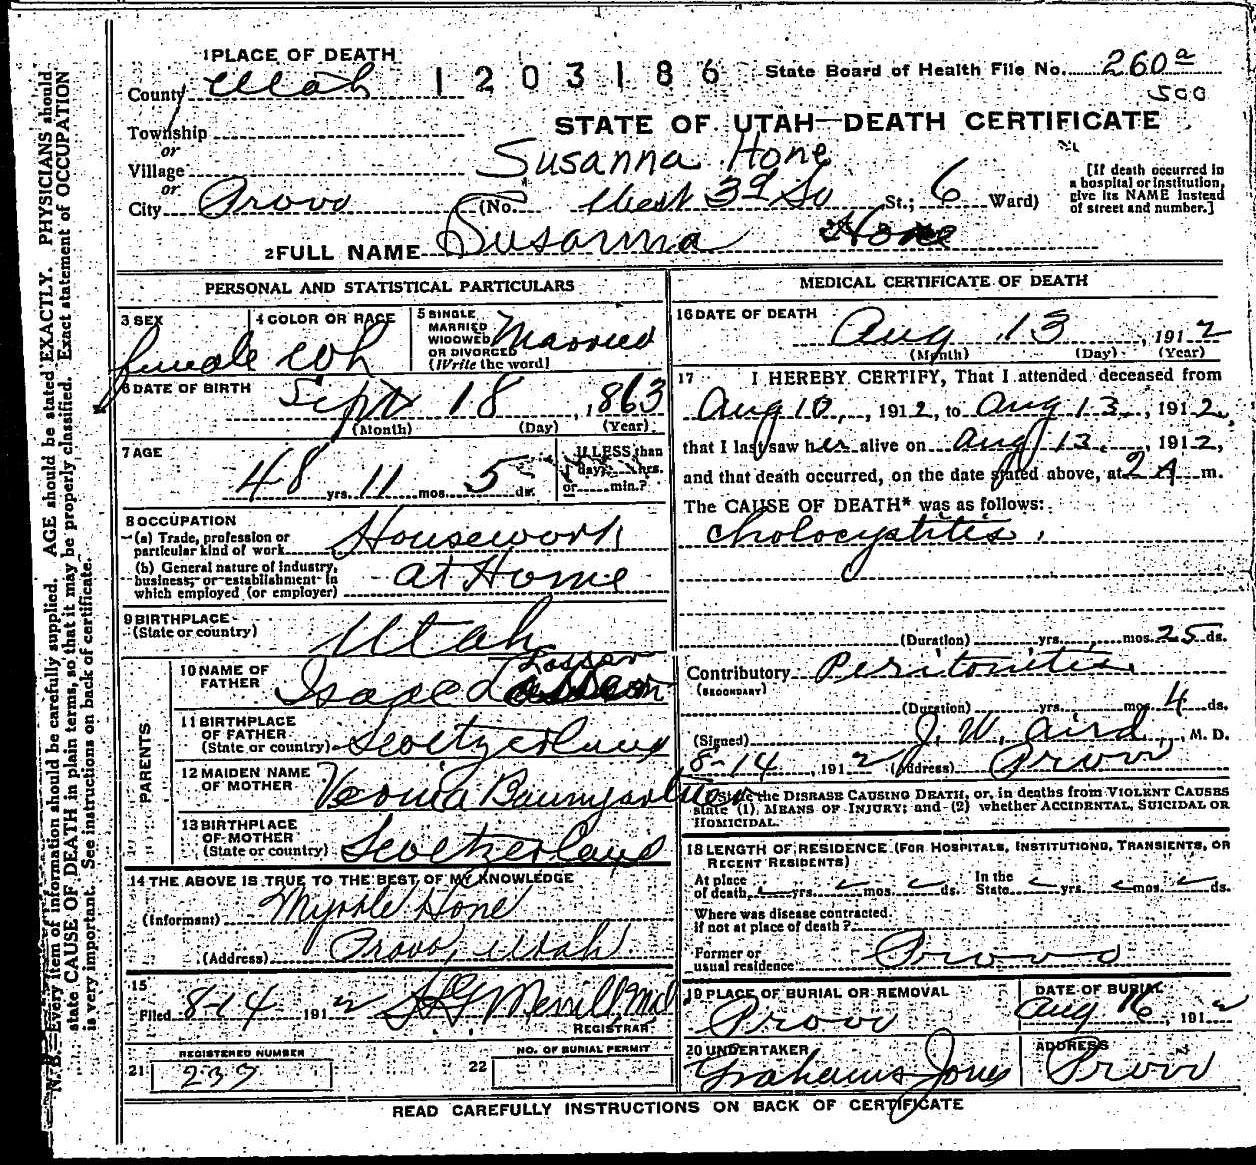 1 PLACE OF DEATH
County Utah
1203186
State Board of Health File No. 260a
500
Township
or
Village
or
City Provo
STATE OF UTAH—DEATH CERTIFICATE
Susanna Hone
(No. West 3d So St.; 6 Ward)
[If death occurred in
a hospital or institution,
give its NAME instead
of street and number.]
2 FULL NAME Susanna Hone
PERSONAL AND STATISTICAL PARTICULARS
3 SEX
female
4 COLOR OR RACE
wh
5 SINGLE
MARRIED
WIDOWED
OR DIVORCED
(Write the word)
Married
6 DATE OF BIRTH
Sept 18, 1863
(Month) (Day) (Year)
7 AGE
48 yrs. 11 mos. 5 ds.
If LESS than
1 day, hrs.
or min.?
8 OCCUPATION
(a) Trade, profession or
particular kind of work Housework
(b) General nature of industry,
business, or establishment in
which employed (or employer)
at Home
9 BIRTHPLACE
(State or country)
Utah
PARENTS
10 NAME OF
FATHER
Isaac
11 BIRTHPLACE
OF FATHER
(State or country) Swetzerland
12 MAIDEN NAME
OF MOTHER
Baumgartner
13 BIRTHPLACE
OF MOTHER
(State or country) Swetzerland
14 THE ABOVE IS TRUE TO THE BEST OF MY KNOWLEDGE
(Informant) Myrtle Hone
(Address) Provo, Utah
15
Filed 8-14 1912 Merrill Md
REGISTRAR
REGISTERED NUMBER
21 237
NO. OF BURIAL PERMIT
22
MEDICAL CERTIFICATE OF DEATH
16 DATE OF DEATH
Aug 13, 1912
(Month) (Day) (Year)
17 I HEREBY CERTIFY, That I attended deceased from
Aug 10, 1912, to Aug 13, 1912,
that I last saw her alive on Aug 13, 1912,
and that death occurred, on the date stated above, at 2 A m.
The CAUSE OF DEATH* was as follows:
Cholocystitis.
(Duration) yrs. mos. 25 ds.
Contributory Peritonitis
(SECONDARY)
(Duration) yrs. mos. 4 ds.
(Signed) J. W. Aird, M. D.
8-14, 1912 (Address) Provo
*State the DISEASE CAUSING DEATH, or, in deaths from VIOLENT CAUSES
state (1) MEANS OF INJURY; and (2) whether ACCIDENTAL, SUICIDAL OR
HOMICIDAL.
18 LENGTH OF RESIDENCE (FOR HOSPITALS, INSTITUTIONS, TRANSIENTS, OR
RECENT RESIDENTS)
At place
of death yrs. mos. ds.
In the
State yrs. mos. ds.
Where was disease contracted
if not at place of death?
Former or
usual residence Provo
19 PLACE OF BURIAL OR REMOVAL
Provo
DATE OF BURIAL
Aug 16, 1912
20 UNDERTAKER
Jones
ADDRESS
Provo
READ CAREFULLY INSTRUCTIONS ON BACK OF CERTIFICATE
N. B.—Every item of information should be carefully supplied. AGE should be stated EXACTLY. PHYSICIANS should
state CAUSE OF DEATH in plain terms, so that it may be properly classified. Exact statement of OCCUPATION
is very important. See instructions on back of certificate.